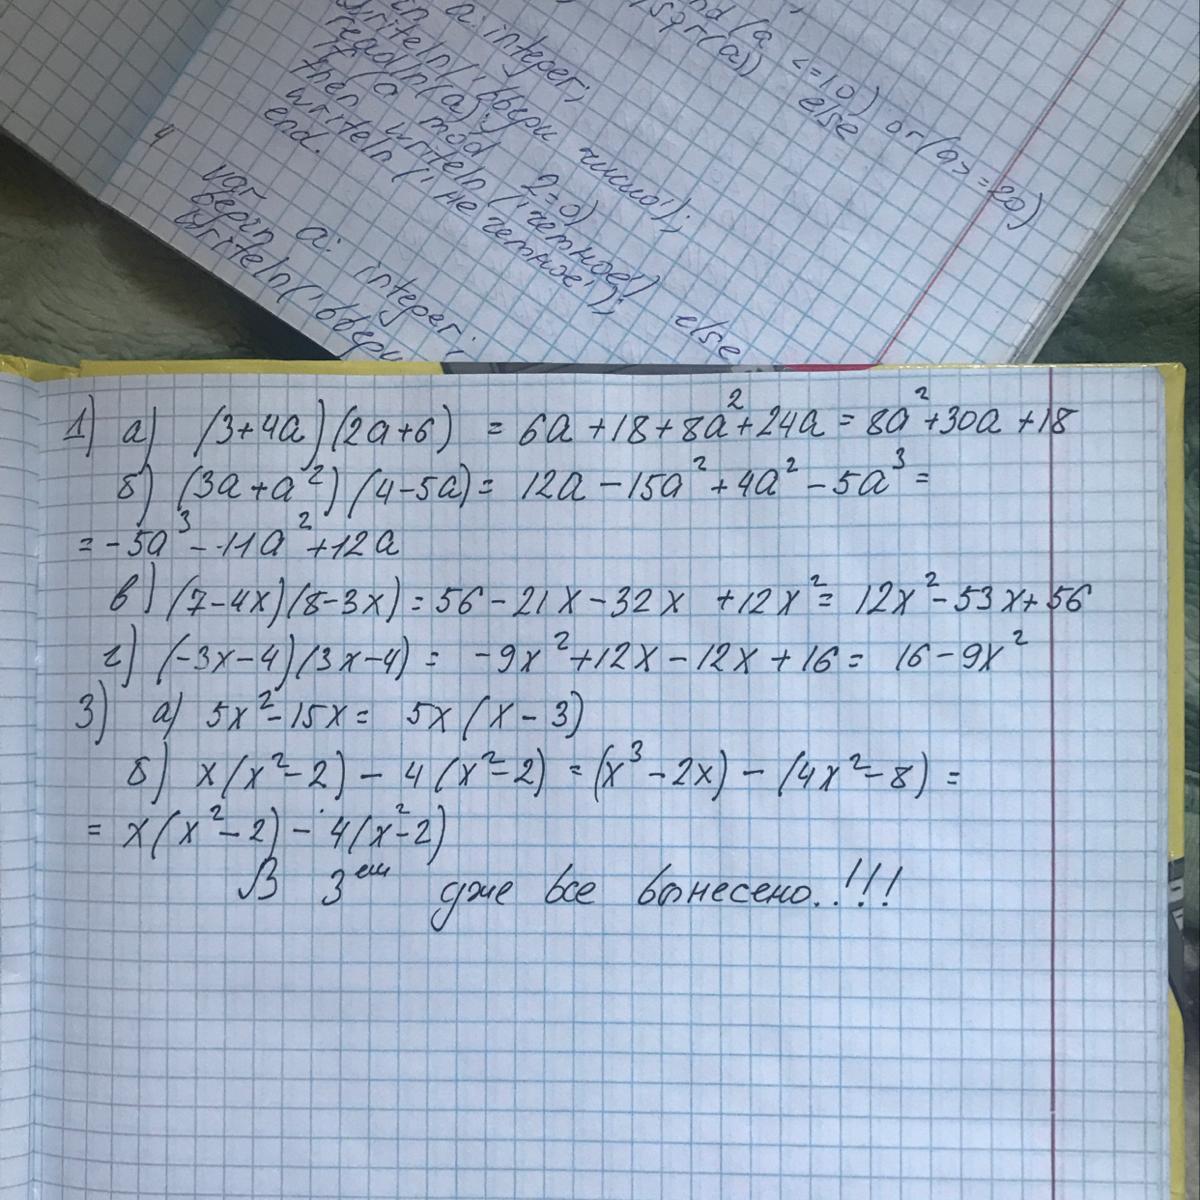 nd (a <=10) or (a> =20)
(sqr(a)) else
a: integer;
writeln('введи число');
readln(a);
if (a mod 2=0)
then writeln('четное') else
writeln('не четное');
end.
4
var a: integer;
begin
writeln('введи
1) а) (3+4a)(2a+6) = 6a+18+8a²+24a = 8a²+30a+18
б) (3a+a²)(4-5a) = 12a-15a²+4a²-5a³ =
= -5a³-11a²+12a
в) (7-4x)(8-3x) = 56-21x-32x +12x² = 12x²-53x+56
г) (-3x-4)(3x-4) = -9x²+12x-12x+16 = 16-9x²
3) а) 5x²-15x = 5x(x-3)
б) x(x²-2) - 4(x²-2) = (x³-2x) - (4x²-8) =
= x(x²-2) - 4(x²-2)
В 3ем уже все вынесено.!!!